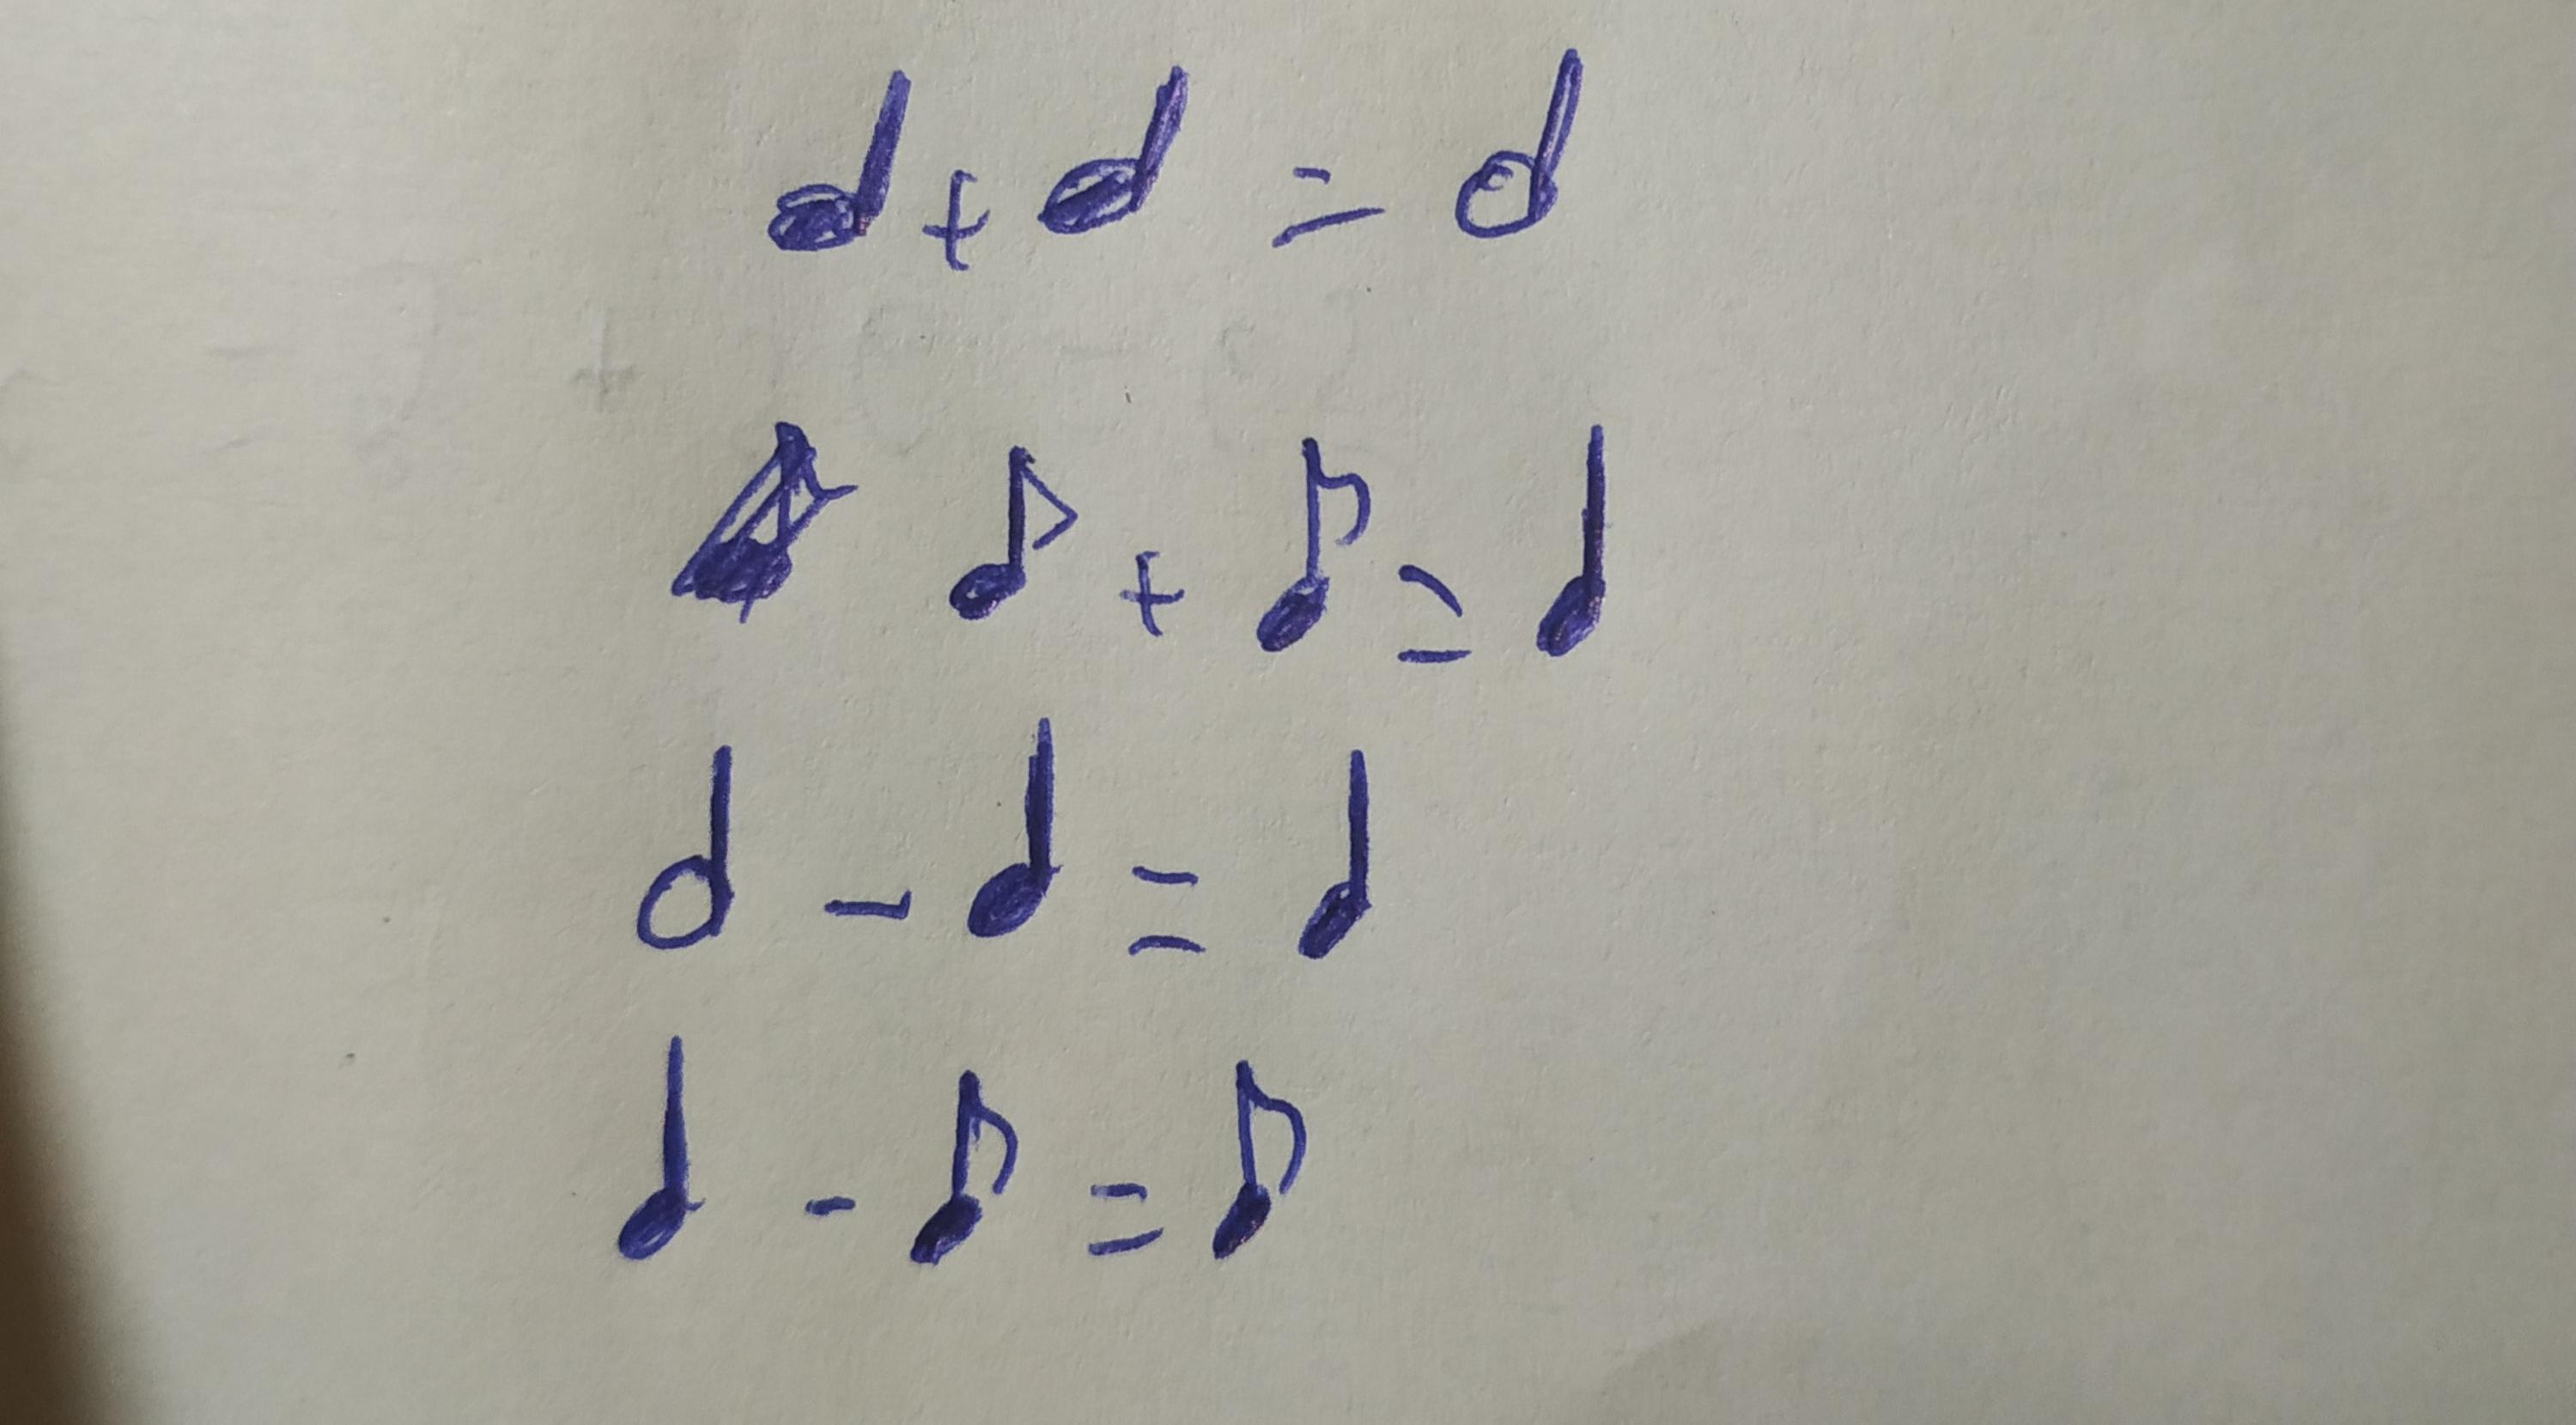 ♩ + ♩ = 𝅗𝅥
♪ + ♪ = ♩
𝅗𝅥 - ♩ = ♩
♩ - ♪ = ♪